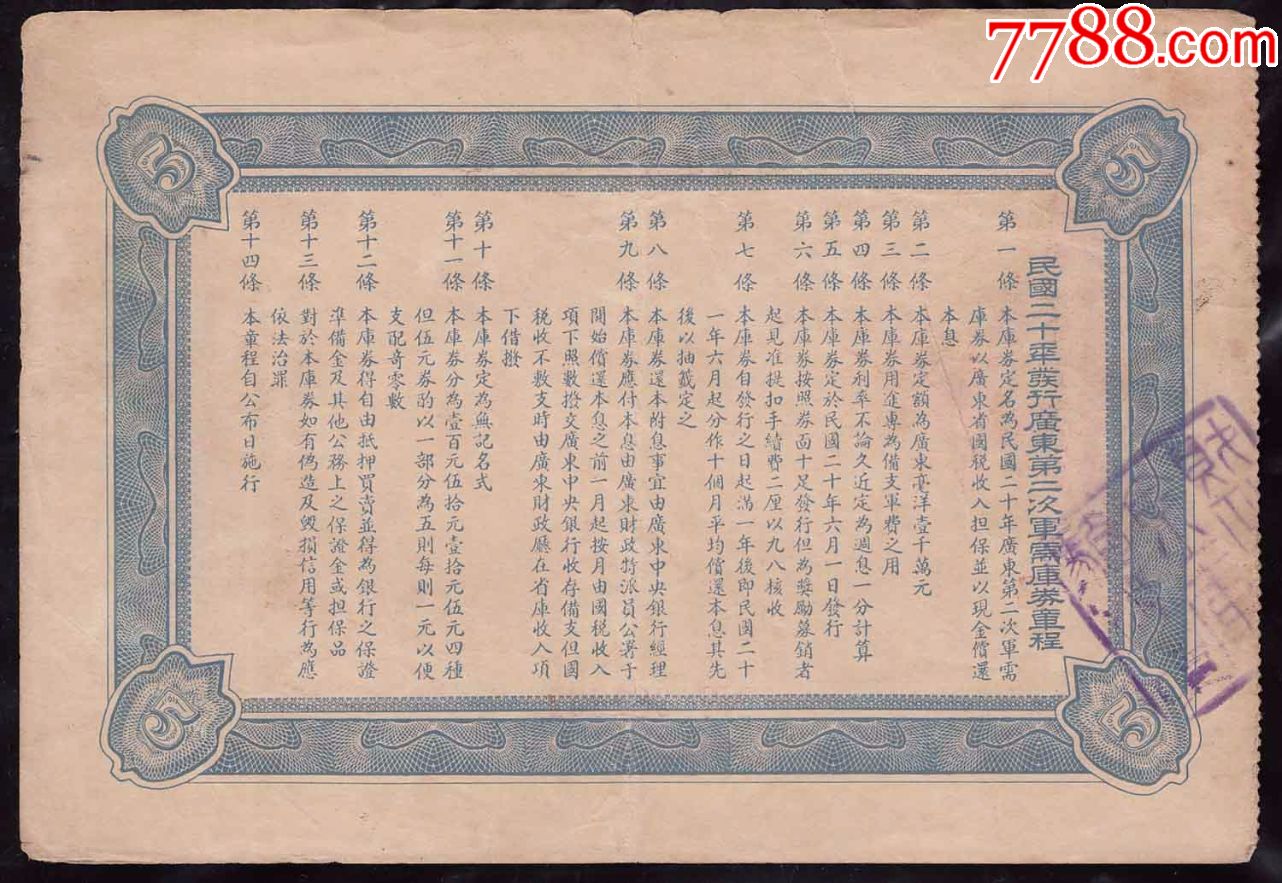 7788.com
民國二十年發行廣東第二次軍需庫券章程
第一條 本庫券定名為民國二十年廣東第二次軍需
庫券以廣東省國稅收入担保並以現金償還
本息
第二條 本庫券定額為廣東毫洋壹千萬元
第三條 本庫券用途專為備支軍費之用
第四條 本庫券利率不論久近定為週息一分計算
第五條 本庫券定於民國二十年六月一日發行
第六條 本庫券按照券面十足發行但為獎勵募銷者
起見准提扣手續費二厘以九八核收
第七條 本庫券自發行之日起滿一年後即民國二十
一年六月起分作十個月平均償還本息其先
後以抽籤定之
第八條 本庫券還本附息事宜由廣東中央銀行經理
第九條 本庫券應付本息由廣東財政特派員公署于
開始償還本息之前一月起按月由國稅收入
項下照數撥交廣東中央銀行收存備支但國
稅收不敷支時由廣東財政廳在省庫收入項
下借撥
第十條 本庫券定為無記名式
第十一條 本庫券分為壹百元伍拾元壹拾元伍元四種
但伍元券酌以一部分為五則每則一元以便
支配奇零數
第十二條 本庫券得自由抵押買賣並得為銀行之保證
準備金及其他公務上之保證金或担保品
第十三條 對於本庫券如有偽造及毀損信用等行為應
依法治罪
第十四條 本章程自公布日施行
5
5
5
5